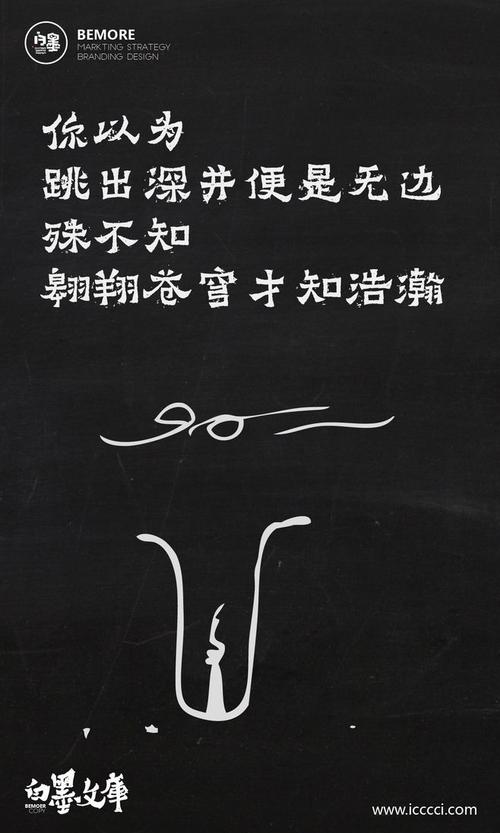 白墨
BEMORE
MARKTING STRATEGY
BRANDING DESIGN
你以为
跳出深井便是无边
殊不知
翱翔苍穹才知浩瀚
白墨文库
BEMOER
COPY
www.icccci.com